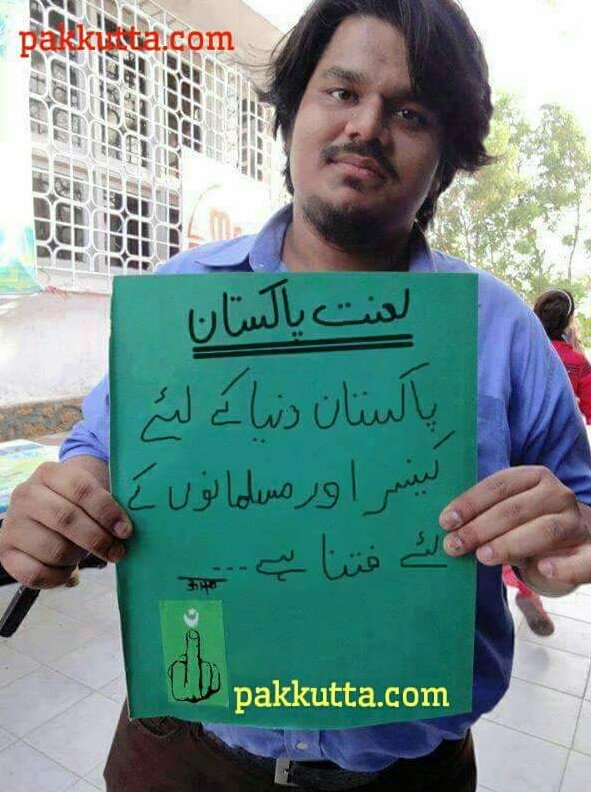 pakkutta.com
لعنت پاکستان
پاکستان دنیا کے لئے
کینسر اور مسلمانوں کے
لئے فتنا ہے ...
pakkutta.com